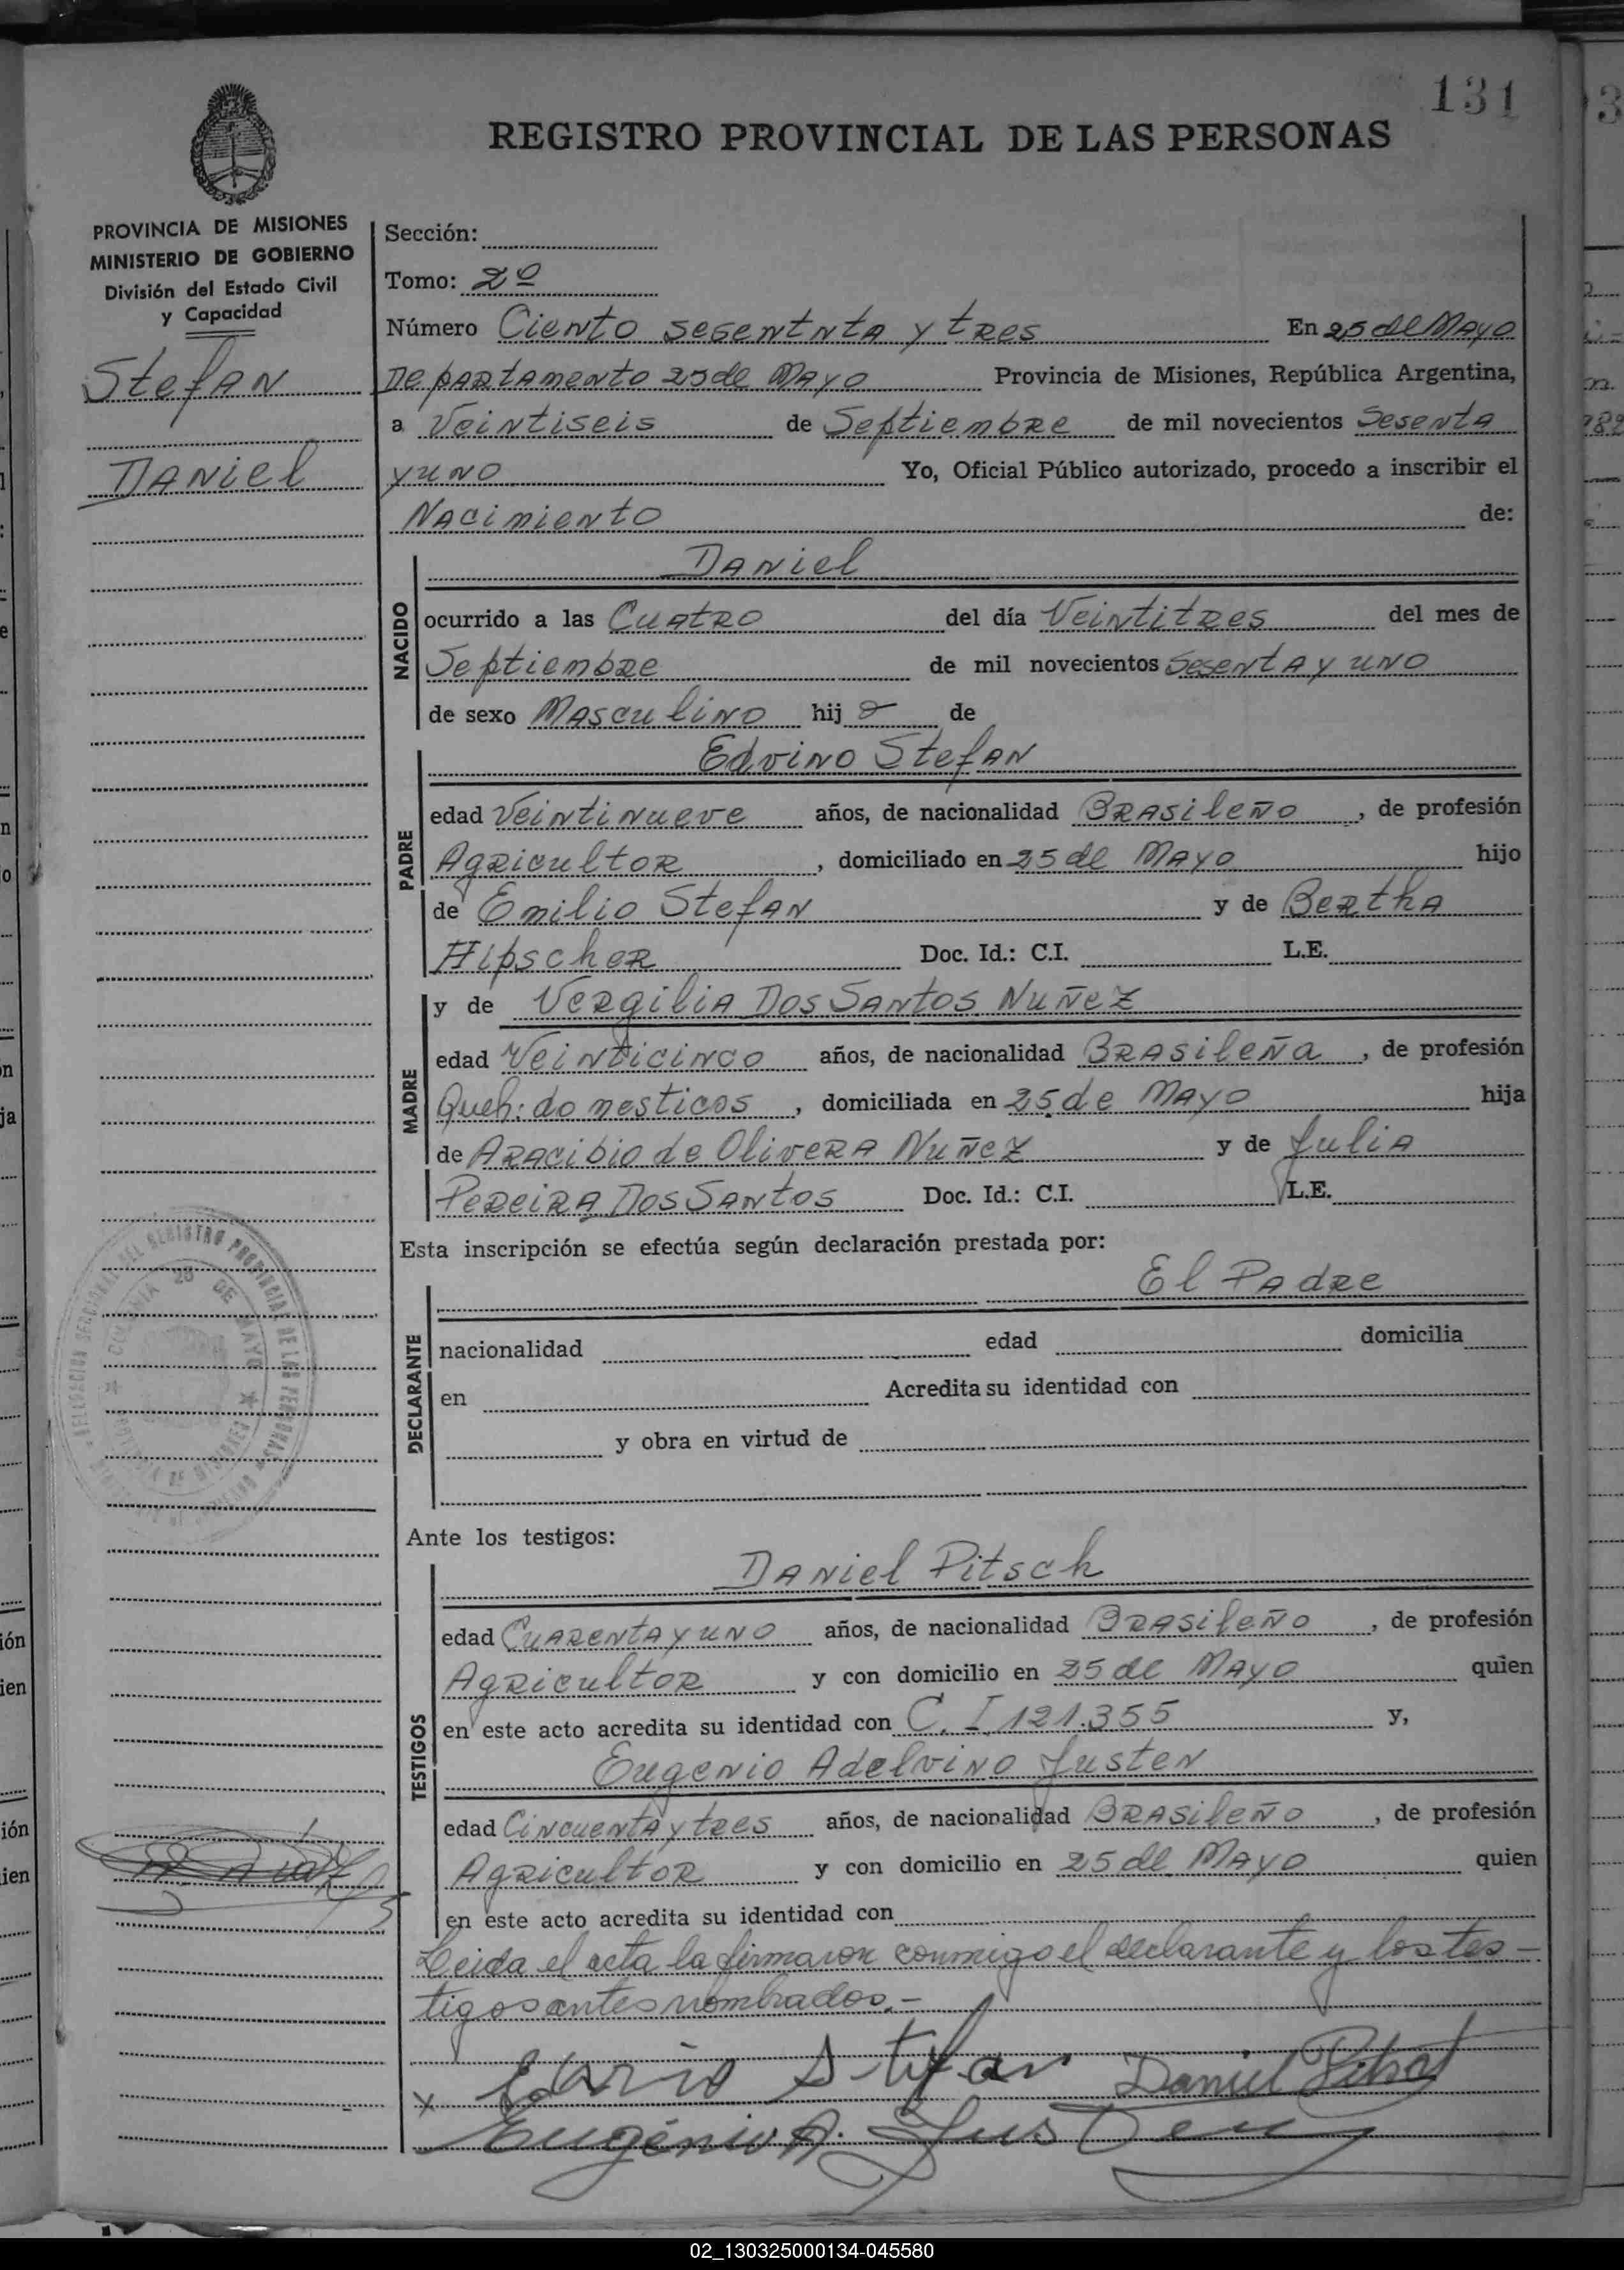 131
REGISTRO PROVINCIAL DE LAS PERSONAS
PROVINCIA DE MISIONES
MINISTERIO DE GOBIERNO
División del Estado Civil
y Capacidad
Stefan
Daniel
Sección:
Tomo: 2º
Número Ciento sesentnta y tres En 25 de Mayo
Departamento 25 de Mayo Provincia de Misiones, República Argentina,
a Veintiseis de Septiembre de mil novecientos Sesenta
y uno Yo, Oficial Público autorizado, procedo a inscribir el
Nacimiento de:
NACIDO
Daniel
ocurrido a las Cuatro del día Veintitres del mes de
Septiembre de mil novecientos Sesenta y uno
de sexo Masculino hij o de
PADRE
Edvino Stefan
edad Veintinueve años, de nacionalidad Brasileño, de profesión
Agricultor, domiciliado en 25 de Mayo hijo
de Emilio Stefan y de Bertha
Hipscher Doc. Id.: C.I. L.E.
MADRE
y de Vergilia Dos Santos Nuñez
edad Veinticinco años, de nacionalidad Brasileña, de profesión
Queh: domesticos, domiciliada en 25 de Mayo hija
de Aracibio de Olivera Nuñez y de Julia
Pereira Dos Santos Doc. Id.: C.I. L.E.
Esta inscripción se efectúa según declaración prestada por:
DECLARANTE
El Padre
nacionalidad edad domicilia
en Acredita su identidad con
y obra en virtud de
Ante los testigos:
TESTIGOS
Daniel Pitsch
edad Cuarenta y uno años, de nacionalidad Brasileño, de profesión
Agricultor y con domicilio en 25 de Mayo quien
en este acto acredita su identidad con C. I. 121.355 y,
Eugenio Adelvino Justen
edad Cincuenta y tres años, de nacionalidad Brasileño, de profesión
Agricultor y con domicilio en 25 de Mayo quien
en este acto acredita su identidad con
Leida el acta la firmaron conmigo el declarante y los tes-
tigos antes nombrados.-
x Edvino Stefan Daniel
Eugênio A. Justen
02_130325000134-045580